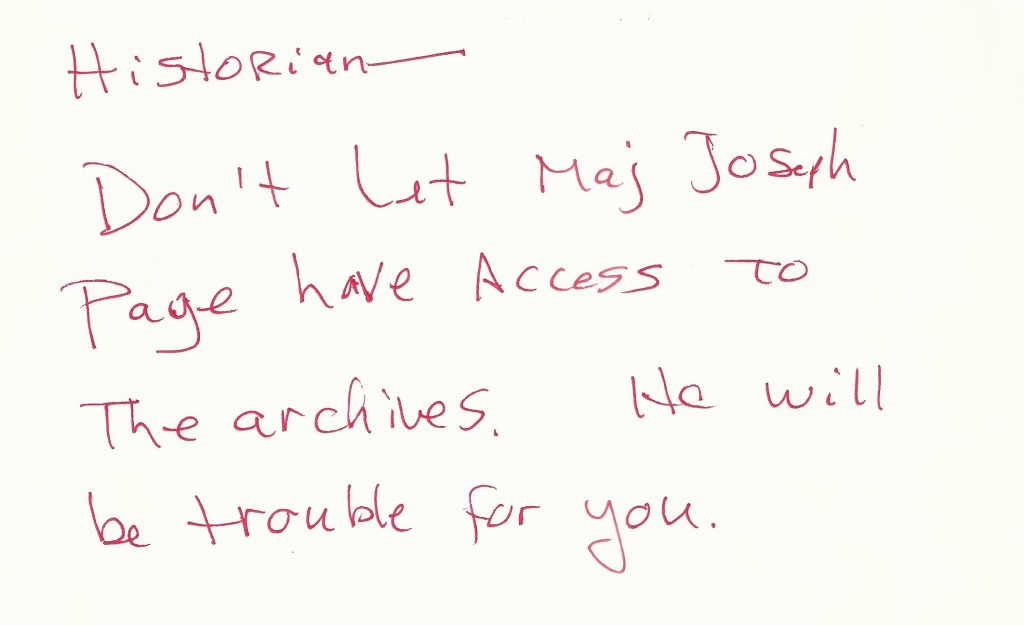 Historian—
Don't let Maj Joseph
Page have Access to
The archives. He will
be trouble for you.